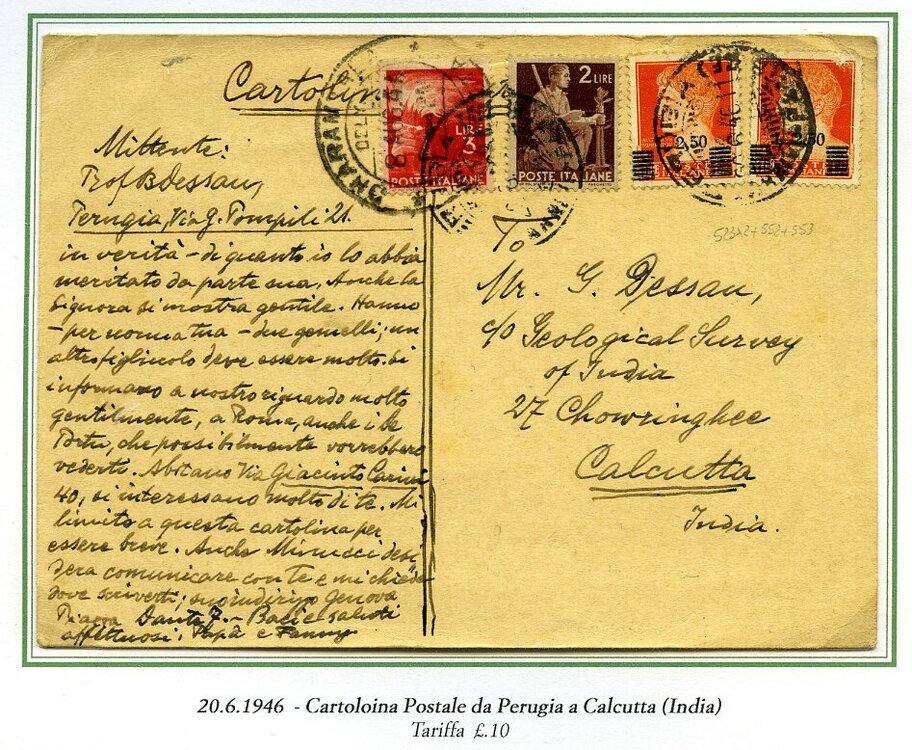 Cartolin
LIRE
3
POSTE ITALIANE
2 LIRE
POSTE ITALIANE
2,50
Mittente:
Prof B Dessau,
Perugia, Via G. Pompili 21.
in verità - di quanto io lo abbia
meritato da parte sua. Anche la
Signora si mostra gentile. Hanno
- per norma tua - due gemelli; un
altro figliuolo deve essere molto. Si
informano a nostro riguardo molto
gentilmente, a Roma, anche i
che possibilmente vorrebbero
vederti. Abitano Via Giacinto Carini
40, si interessano molto di te. Mi
limito a questa cartolina per
essere breve. Anche Minucci desi
dera comunicare con te e mi chiede
dove scriverti; suo indirizzo Genova
Piazza Dante 7. - Baci e saluti
affettuosi, Papà e Fanny
523x2+552+553
To
Mr. G. Dessau,
c/o Geological Survey
of India
27 Chowringhee
Calcutta
India.
20.6.1946 - Cartoloina Postale da Perugia a Calcutta (India)
Tariffa £.10